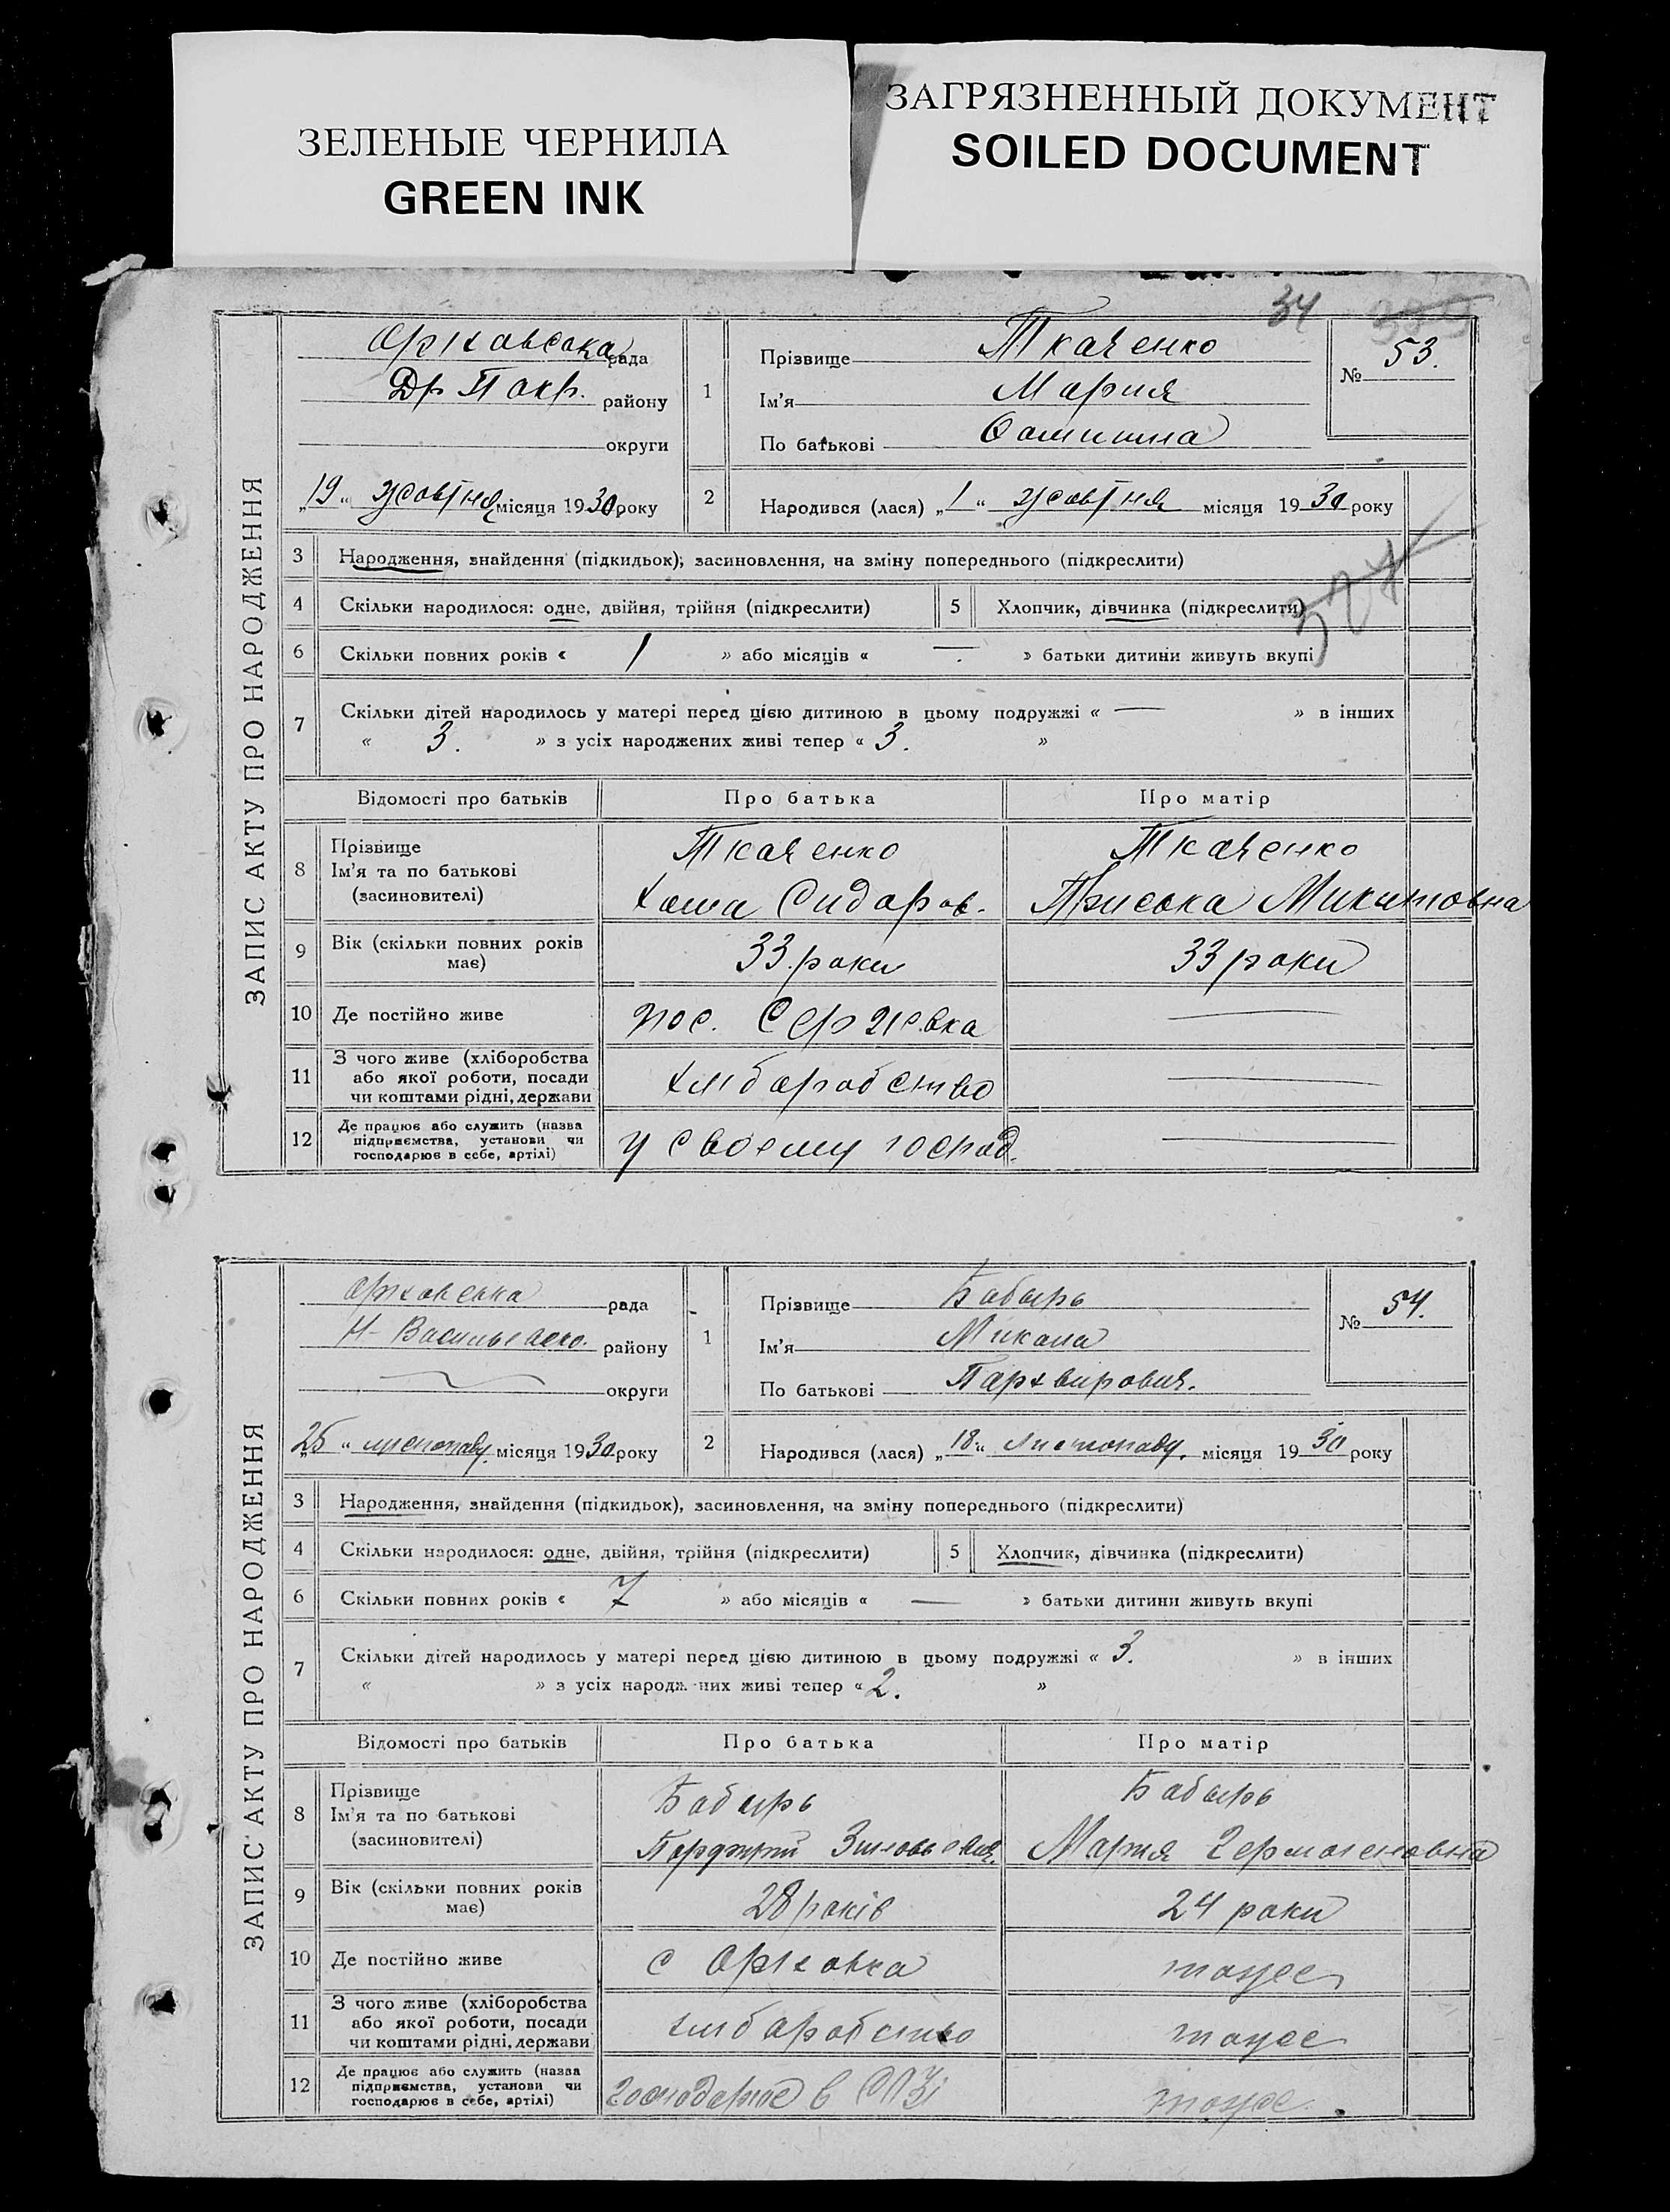 ЗЕЛЕНЫЕ ЧЕРНИЛА
GREEN INK
ЗАГРЯЗНЕННЫЙ ДОКУМЕНТ
SOILED DOCUMENT
34
ЗАПИС АКТУ ПРО НАРОДЖЕННЯ
рада
району
округи
„19“ жовтня місяця 1930 року
1
Прізвище Ткаченко
Ім'я Мария
По батькові
№ 53.
2
Народився (лася) „1“ жовтня місяця 1930 року
3 Народження, знайдення (підкидьок), засиновлення, на зміну попереднього (підкреслити)
4 Скільки народилося: одне, двійня, трійня (підкреслити)
5 Хлопчик, дівчинка (підкреслити)
6 Скільки повних років « 1 » або місяців « — » батьки дитини живуть вкупі
7 Скільки дітей народилось у матері перед цією дитиною в цьому подружжі « — » в інших
« 3. » з усіх народжених живі тепер « 3. »
Відомості про батьків Про батька Про матір
8 Прізвище
Ім'я та по батькові
(засновителі)
Ткаченко
Хома Сидоров.
Ткаченко
Приська Микитовна
9 Вік (скільки повних років
має)
33 роки
33 роки
10 Де постійно живе
пос. Сергіевка
—
11 З чого живе (хліборобства
або якої роботи, посади
чи коштами рідні, держави
хліборобство
—
12 Де працює або служить (назва
підприємства, установи чи
господарює в себе, артілі)
у своему господ.
—
ЗАПИС АКТУ ПРО НАРОДЖЕННЯ
рада
Н-Васильевско. району
округи
„25“ листопаду місяця 1930 року
1
Прізвище Бабырь
Ім'я Микола
По батькові
№ 54.
2
Народився (лася) „18“ листопаду місяця 1930 року
3 Народження, знайдення (підкидьок), засиновлення, на зміну попереднього (підкреслити)
4 Скільки народилося: одне, двійня, трійня (підкреслити)
5 Хлопчик, дівчинка (підкреслити)
6 Скільки повних років « 7 » або місяців « — » батьки дитини живуть вкупі
7 Скільки дітей народилось у матері перед цією дитиною в цьому подружжі « 3. » в інших
« » з усіх народжених живі тепер « 2. »
Відомості про батьків Про батька Про матір
8 Прізвище
Ім'я та по батькові
(засиновителі)
Бабырь
Бабырь
Мария Гермогеновна
9 Вік (скільки повних років
має)
28 років
24 роки
10 Де постійно живе
с Оріховка
тоже
11 З чого живе (хліборобства
або якої роботи, посади
чи коштами рідні, держави
хліборобство
тоже
12 Де працює або служить (назва
підприємства, установи чи
господарює в себе, артілі)
господарює в СОЗі
тоже